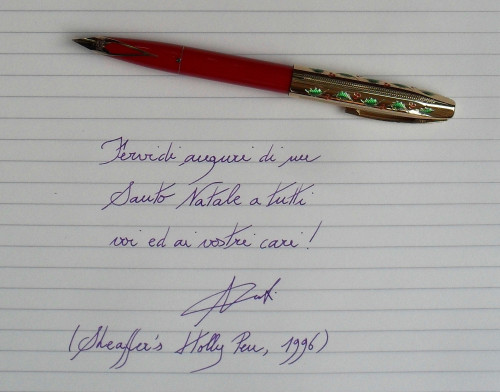 Fervidi auguri di un
Santo Natale a tutti
voi ed ai vostri cari!
(Sheaffer's Holly Pen, 1996)